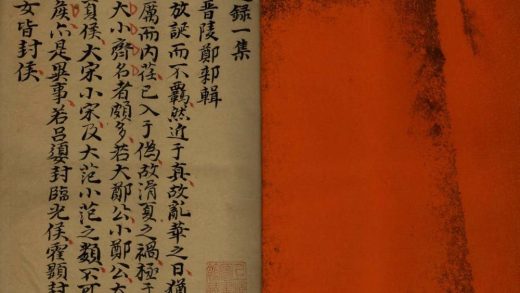 録一集
晉陵鄭輯
放誕而不羈然近于真故亂華之日猶
厲而内荏已入于偽故滑夏之禍極于
大小齊名者頗多若大鄭公小鄭公大
夏侯大宋小宋及大范小范之類不可
侯亦是異事若呂嬃封臨光侯霍顯封
女皆封侯